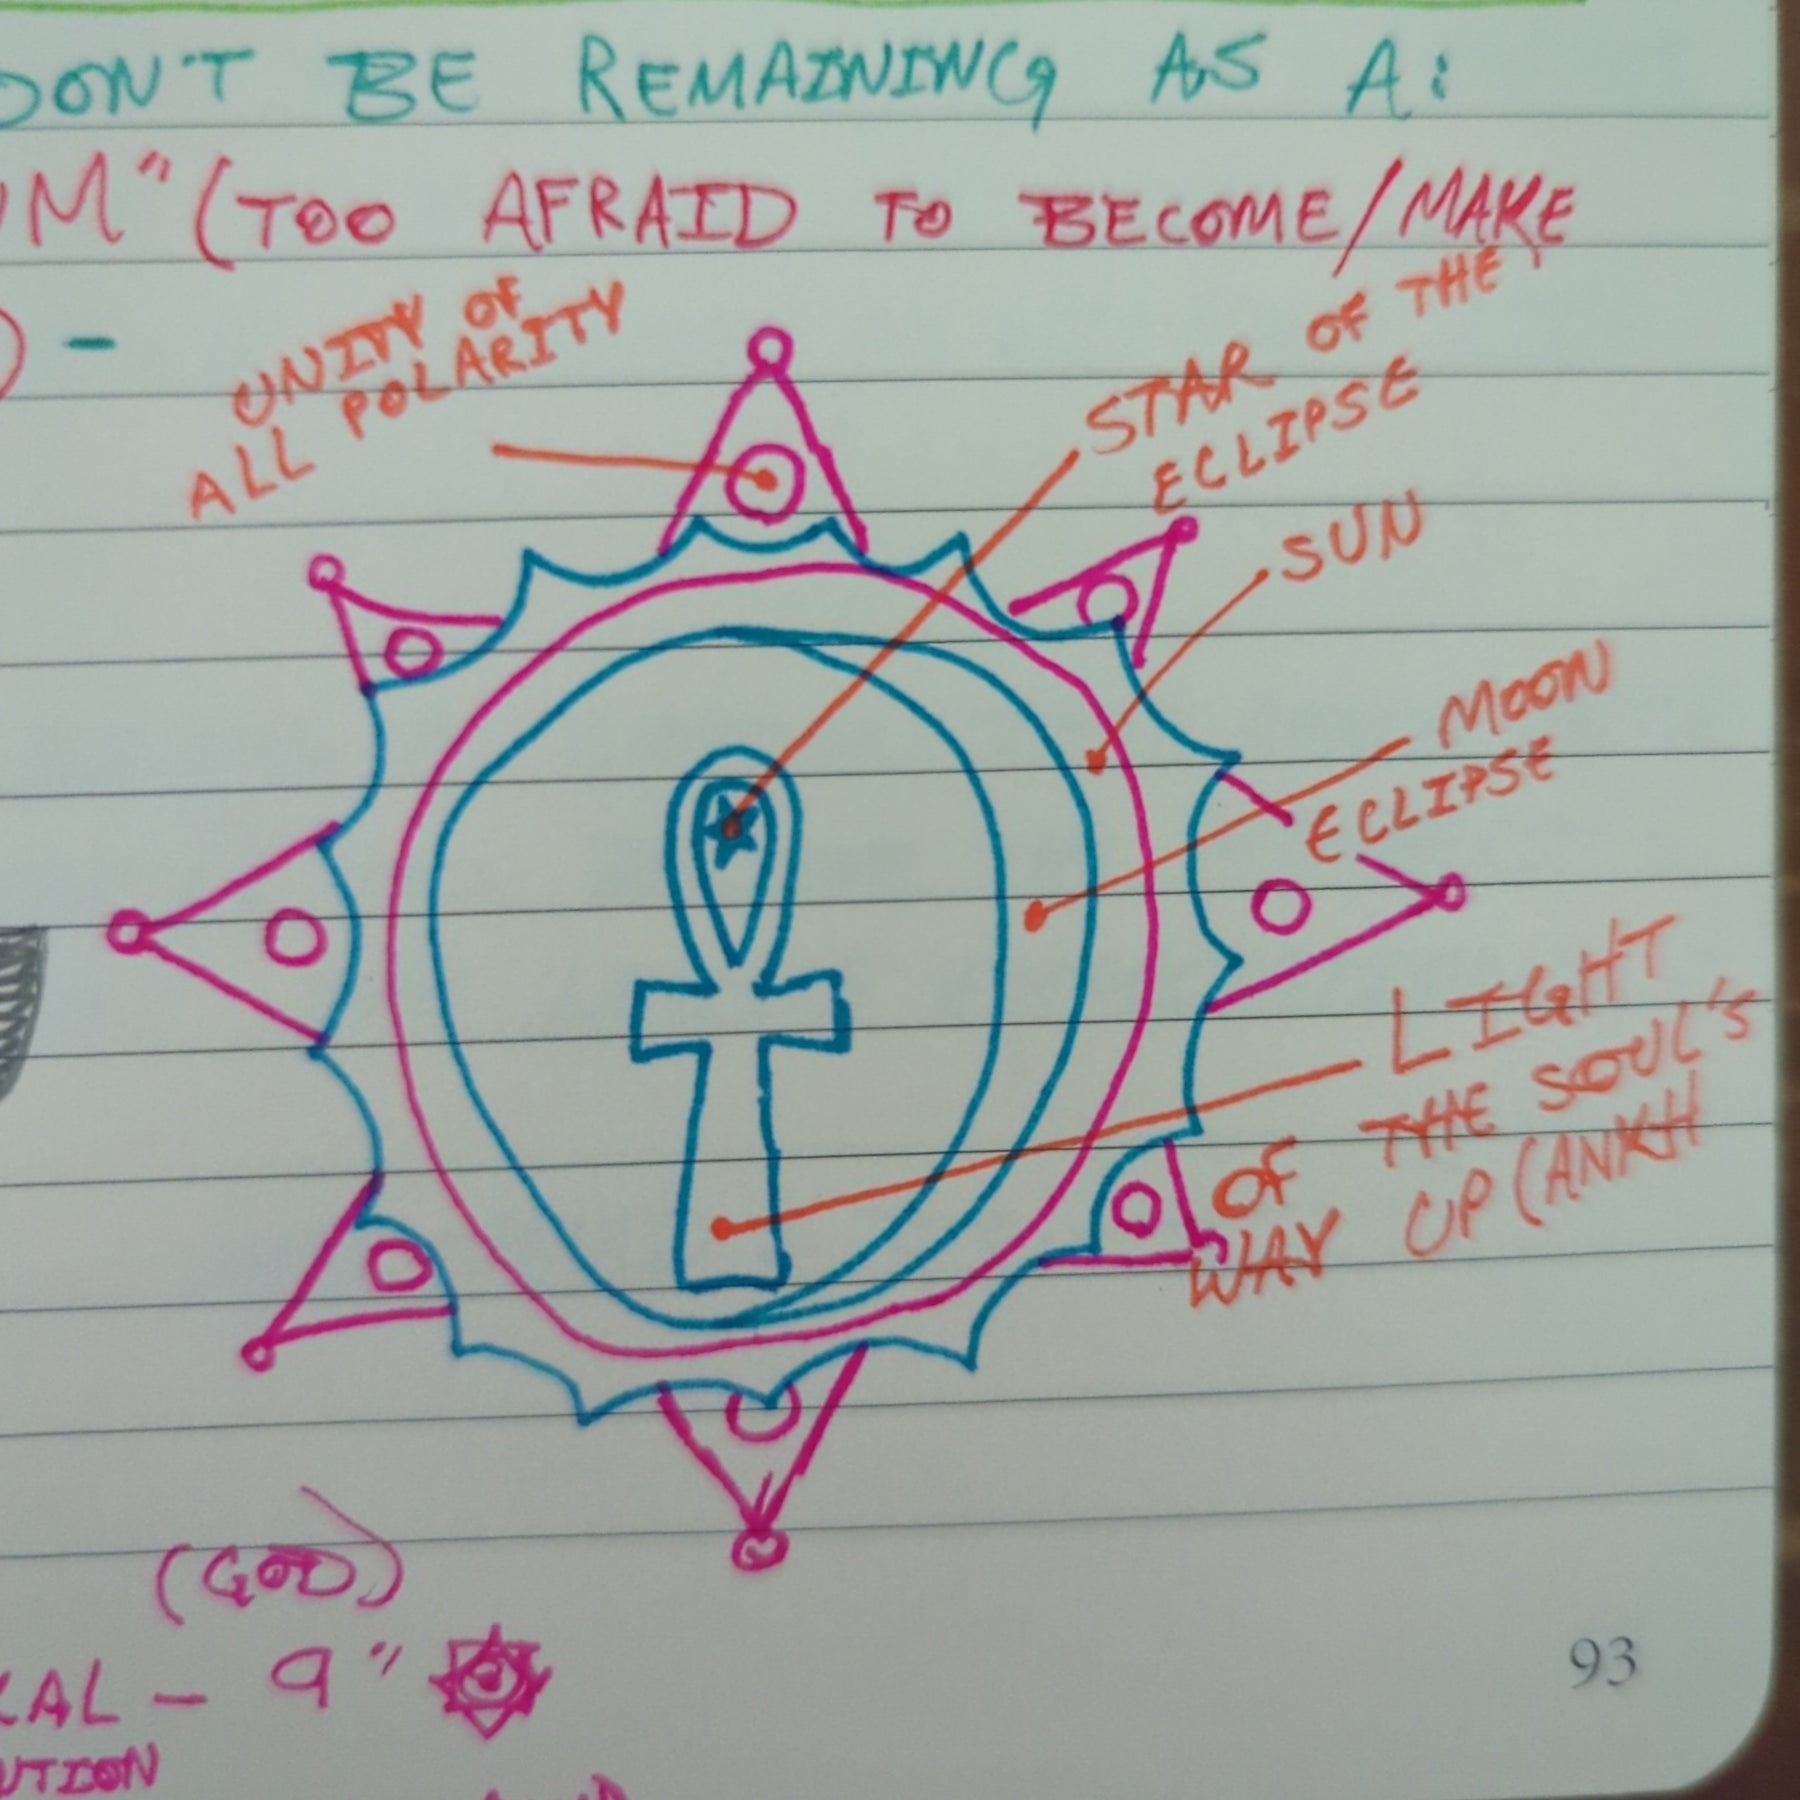 DON'T BE REMAINING AS A:
UM" (TOO AFRAID TO BECOME/MAKE
) -
UNITY OF
ALL POLARITY
STAR OF THE
ECLIPSE
SUN
MOON
ECLIPSE
LIGHT
OF THE SOUL'S
WAY UP (ANKH
(GOD)
CAL - 9"
UTION
93